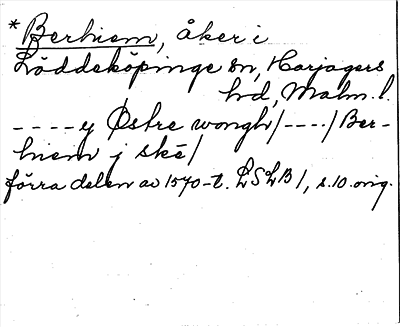 * Berhiem, åker i
Löddeköpinge sn, Harjagers
hd, Malm. l.
----y Østre wongh/----/Ber-
hiem j skē/
förra delen av 1570-t. LSLB1, s.10. orig.